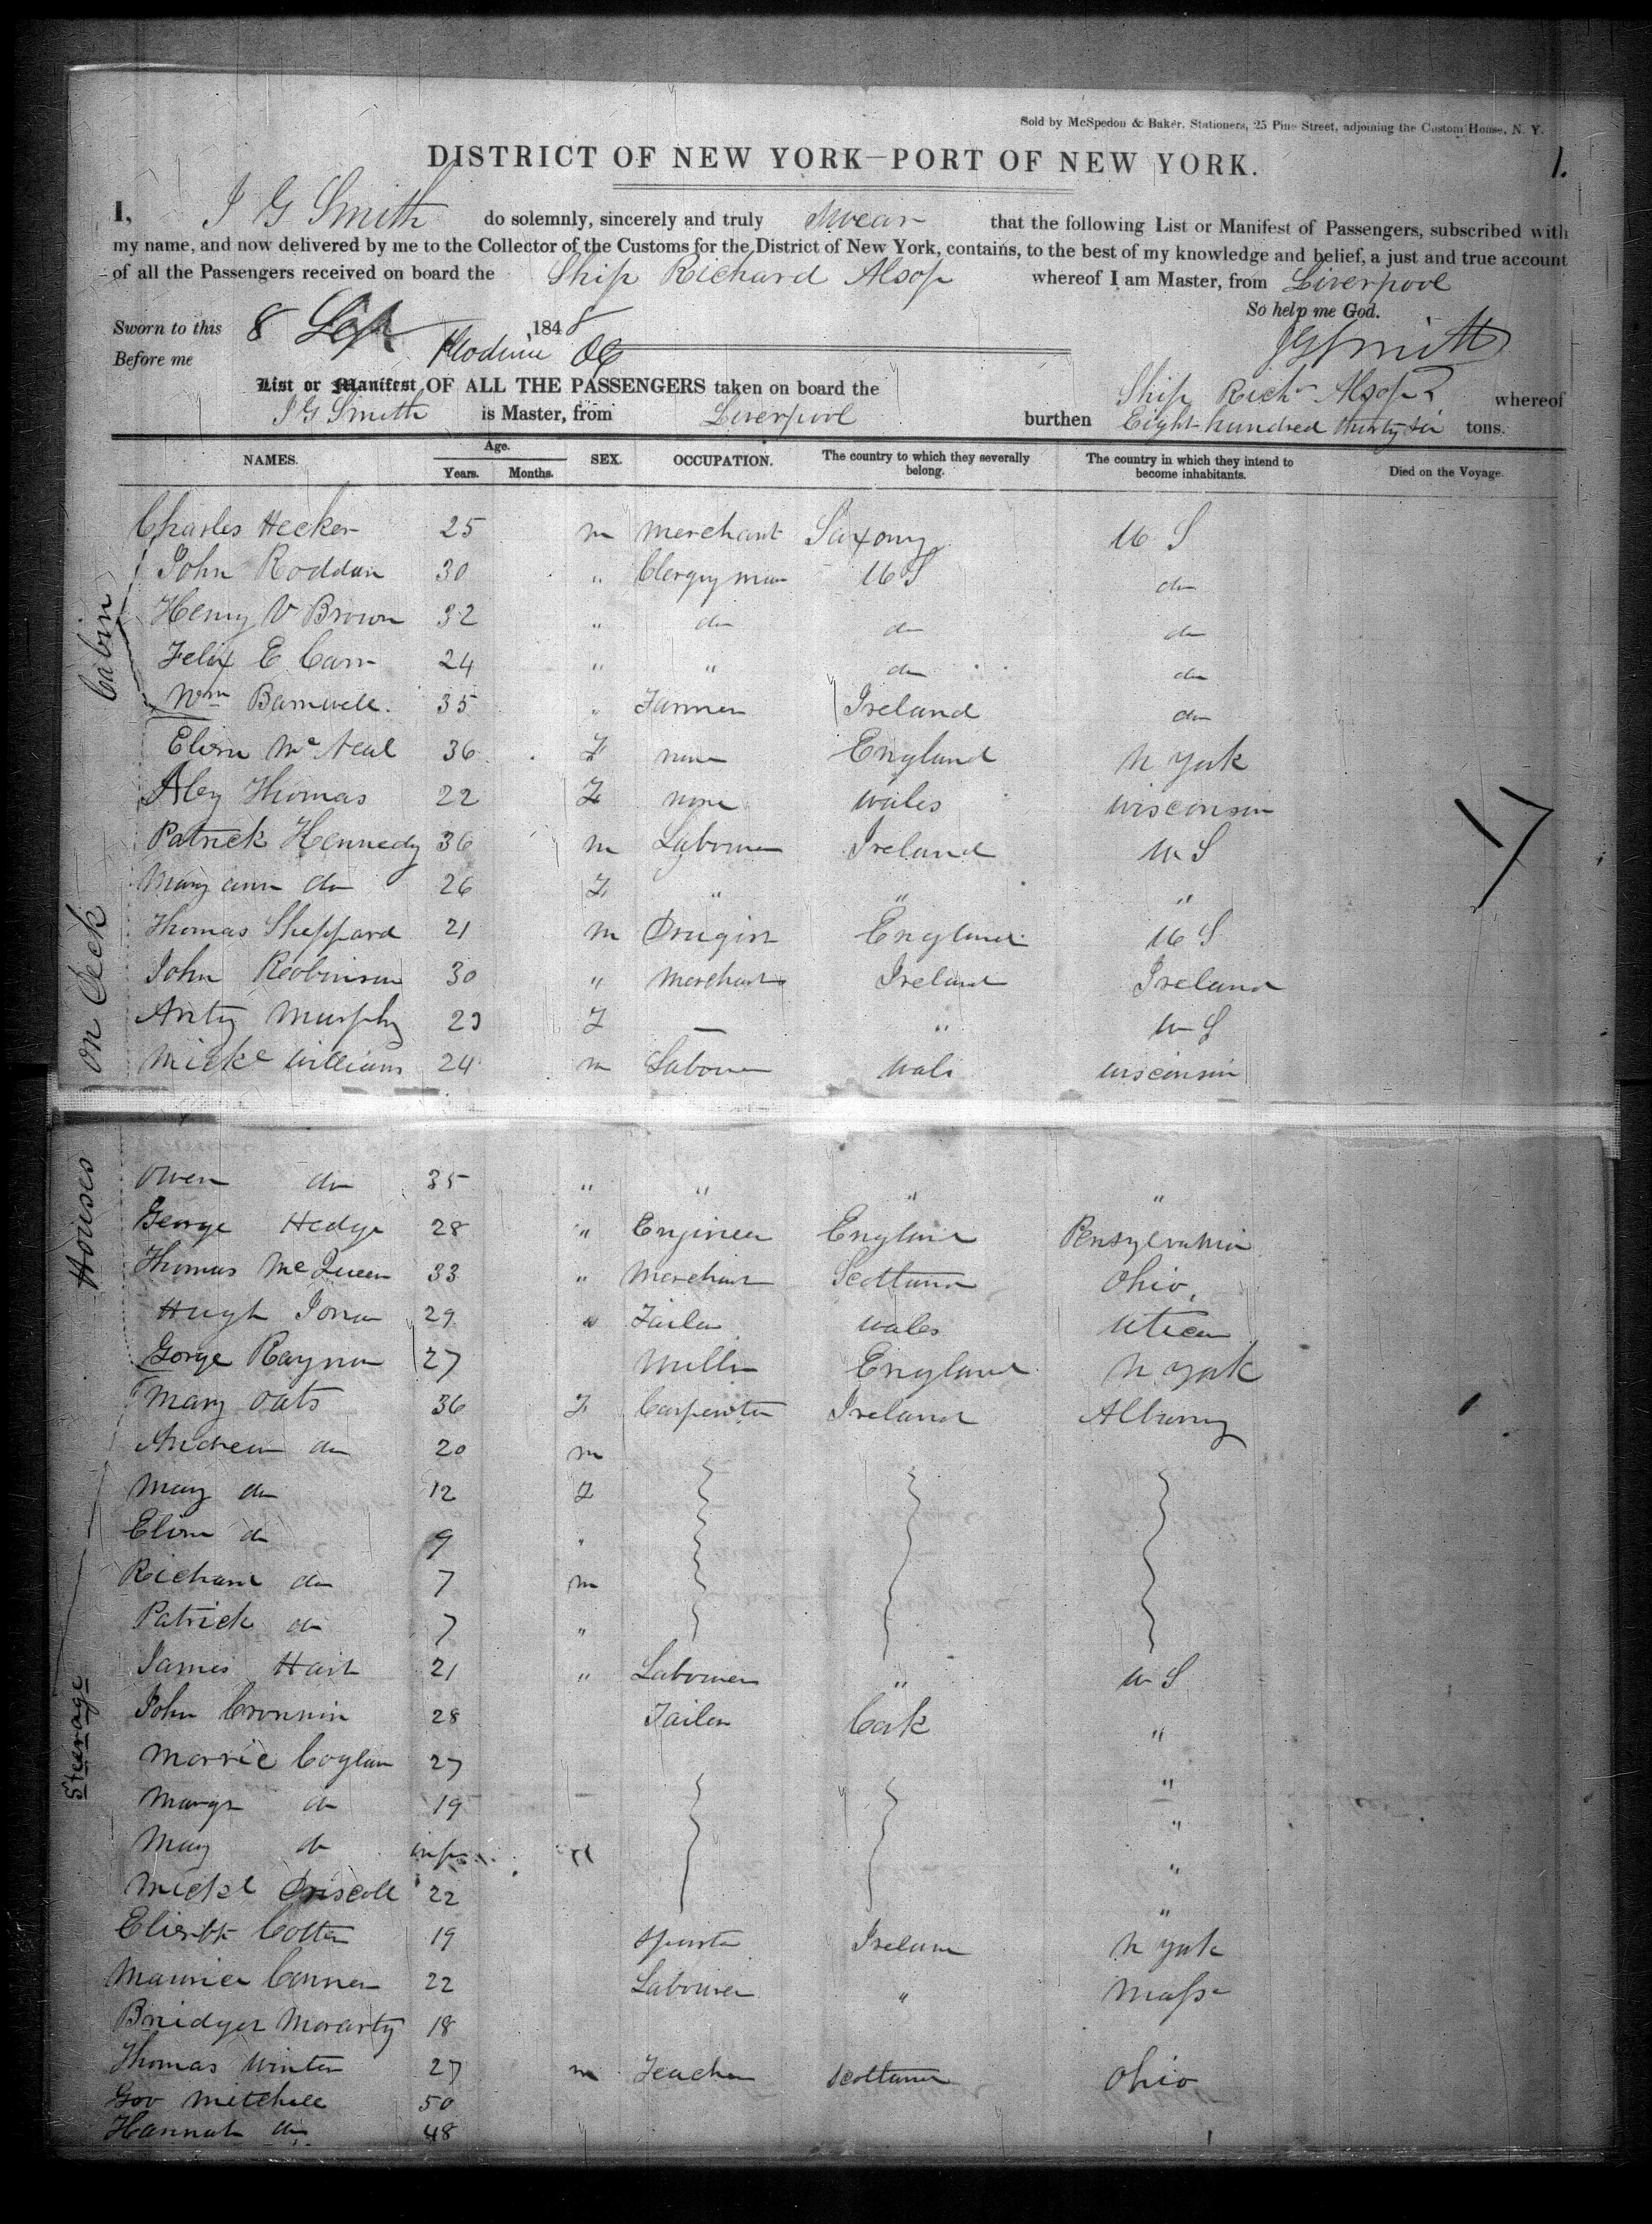 Sold by McSpedon & Baker, Stationers, 25 Pine Street, adjoining the Custom House, N. Y.
DISTRICT OF NEW YORK—PORT OF NEW YORK.
1.
I, J G Smith do solemnly, sincerely and truly swear that the following List or Manifest of Passengers, subscribed with
my name, and now delivered by me to the Collector of the Customs for the District of New York, contains, to the best of my knowledge and belief, a just and true account
of all the Passengers received on board the Ship Richard Alsop whereof I am Master, from Liverpool
So help me God.
Sworn to this 8 Sep 1848 J G Smith
Before me
List or Manifest OF ALL THE PASSENGERS taken on board the Ship Richd Alsop whereof
J G Smith is Master, from Liverpool burthen Eight hundred thirty six tons.
NAMES. Age. Years. Months. SEX. OCCUPATION. The country to which they severally belong. The country in which they intend to become inhabitants. Died on the Voyage.
Cabin
Charles Hecker 25 m Merchant Saxony U S
John Roddan 30 " Clergyman U S do
Henry V Brown 32 " do do do
Felix E Carr 24 " " do do
Wm Barnwell. 35 " Farmer Ireland do
on Deck
Eliza McNeal 36 F none England N York
Aley Thomas 22 F none Wales Wisconsin
Patrick Kennedy 36 m Labourer Ireland U S
Mary ann do 26 F " " "
Thomas Sheppard 21 m Drugist England U S
John Robinson 30 " Merchant Ireland Ireland
Anty Murphy 23 F — " U S
Mickl Williams 24 m Labourer Wales Wisconsin
Houses
Owen do 35 " " " "
George Hedge 28 " Engineer England Pensylvania
Thomas McQueen 33 " Merchant Scotland Ohio
Hugh Jones 29 " Tailor Wales Utica
Gorge Raynor 27 Miller England N York
Steerage
Mary Oats 36 F Carpenter Ireland Albany
Andrew do 20 m
Mary do 12 F
Eliza do 9 "
Richard do 7 m
Patrick do 7 "
James Hart 21 " Labourer " U S
John Cronnin 28 Tailor Cork "
Morric Coglan 27 "
Margt do 19 "
Mary do inft "
Mickl Driscoll 22 "
Elizabth Cotter 19 Spinster Ireland N York
Maurice Connor 22 Labourer " Mass
Bridget Morarty 18
Thomas Winter 27 m Teacher Scotland Ohio
Geo Mitchell 50
Hannah do 48